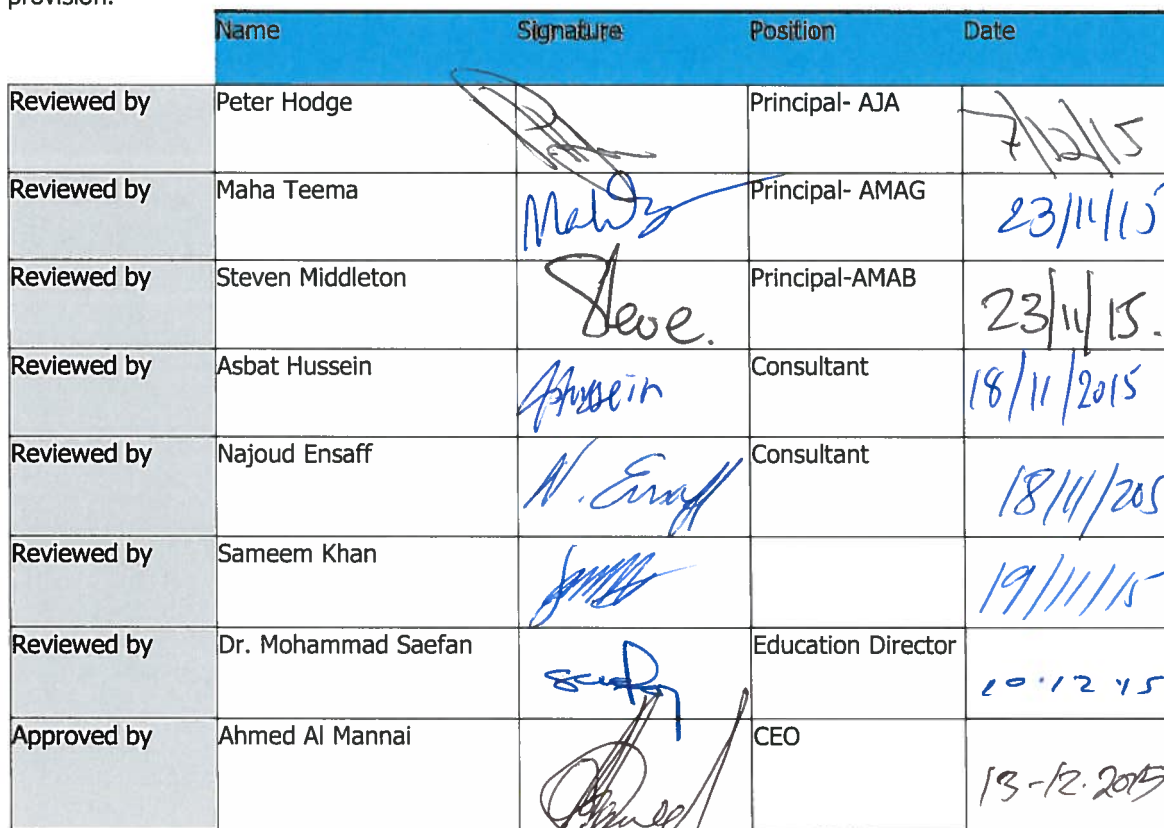 provision.
Name Signature Position Date
Reviewed by Peter Hodge Principal- AJA 7/12/15
Reviewed by Maha Teema Principal- AMAG 23/11/15
Reviewed by Steven Middleton Steve. Principal-AMAB 23/11/15.
Reviewed by Asbat Hussein AHussein Consultant 18/11/2015
Reviewed by Najoud Ensaff N. Ensaff Consultant 18/11/205
Reviewed by Sameem Khan 19/11/15
Reviewed by Dr. Mohammad Saefan Education Director 10.12.15
Approved by Ahmed Al Mannai CEO 13-12.2015